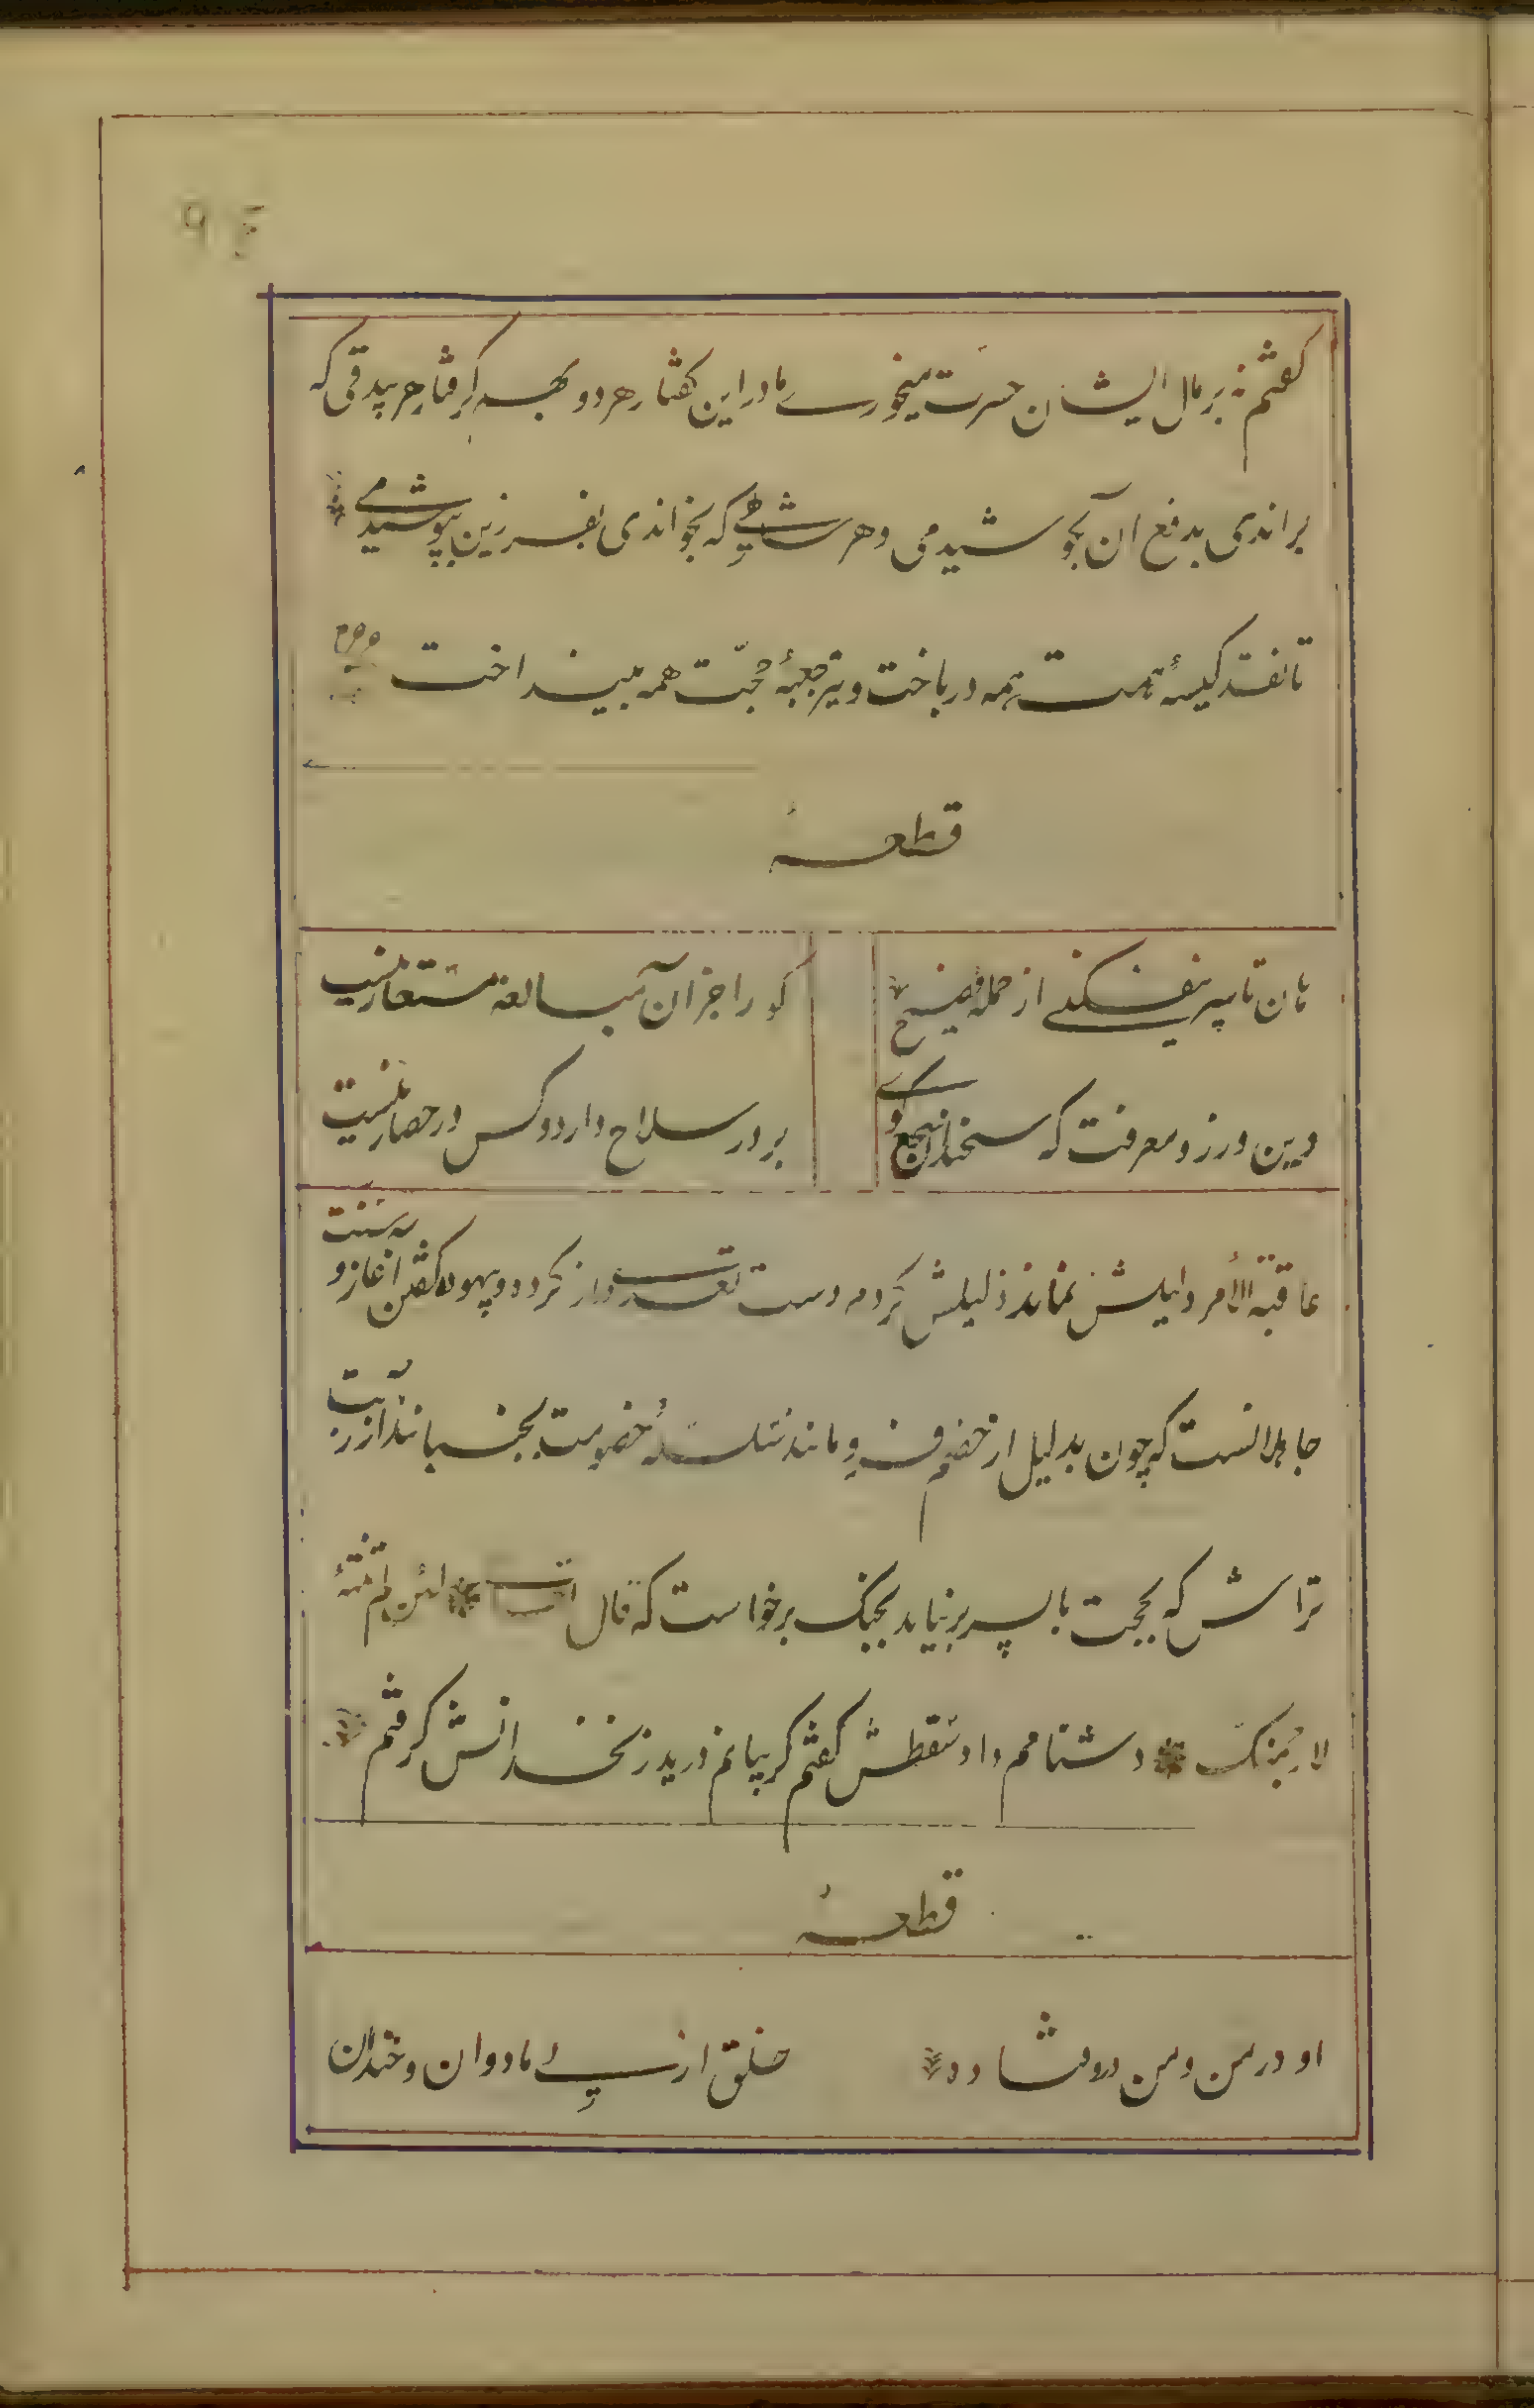 گفتم نه بر مال ایشان حسرت میخوری ما در این گفتار هر دو بهم گرفتار هر بیدقی که
براندی بدفع آن بکوشیدمی و هر شاهی که بخواندی بفرزین بپوشیدمی
تا نقد کیسهٔ همت همه درباخت و تیر جعبهٔ حجّت همه بینداخت
قطعهٔ
هان تا سپر نیفکنی از حملهٔ فصیح
کو را جز آن مبالغهٔ مستعار نیست
دین ورز و معرفت که سخندان سجع گوی
بر در سلاح دارد و کس در حصار نیست
عاقبة الأمر دلیلش نماند ذلیلش کردم دست تعدی دراز کرد و بیهوده گفتن آغاز و سنت
جاهلانست که چون بدلیل از خصم فرو مانند سلسلهٔ خصومت بجنبانند آزر بت
تراش که بحجت با پسر بر نیامد بجنگ برخواست که قال لئن لم تنته
لارجمنک دشنامم داد سقطش گفتم گریبانم درید زنخدانش گرفتم
قطعهٔ
او در من و من درو فتاده
خلق از پی ما دوان و خندان